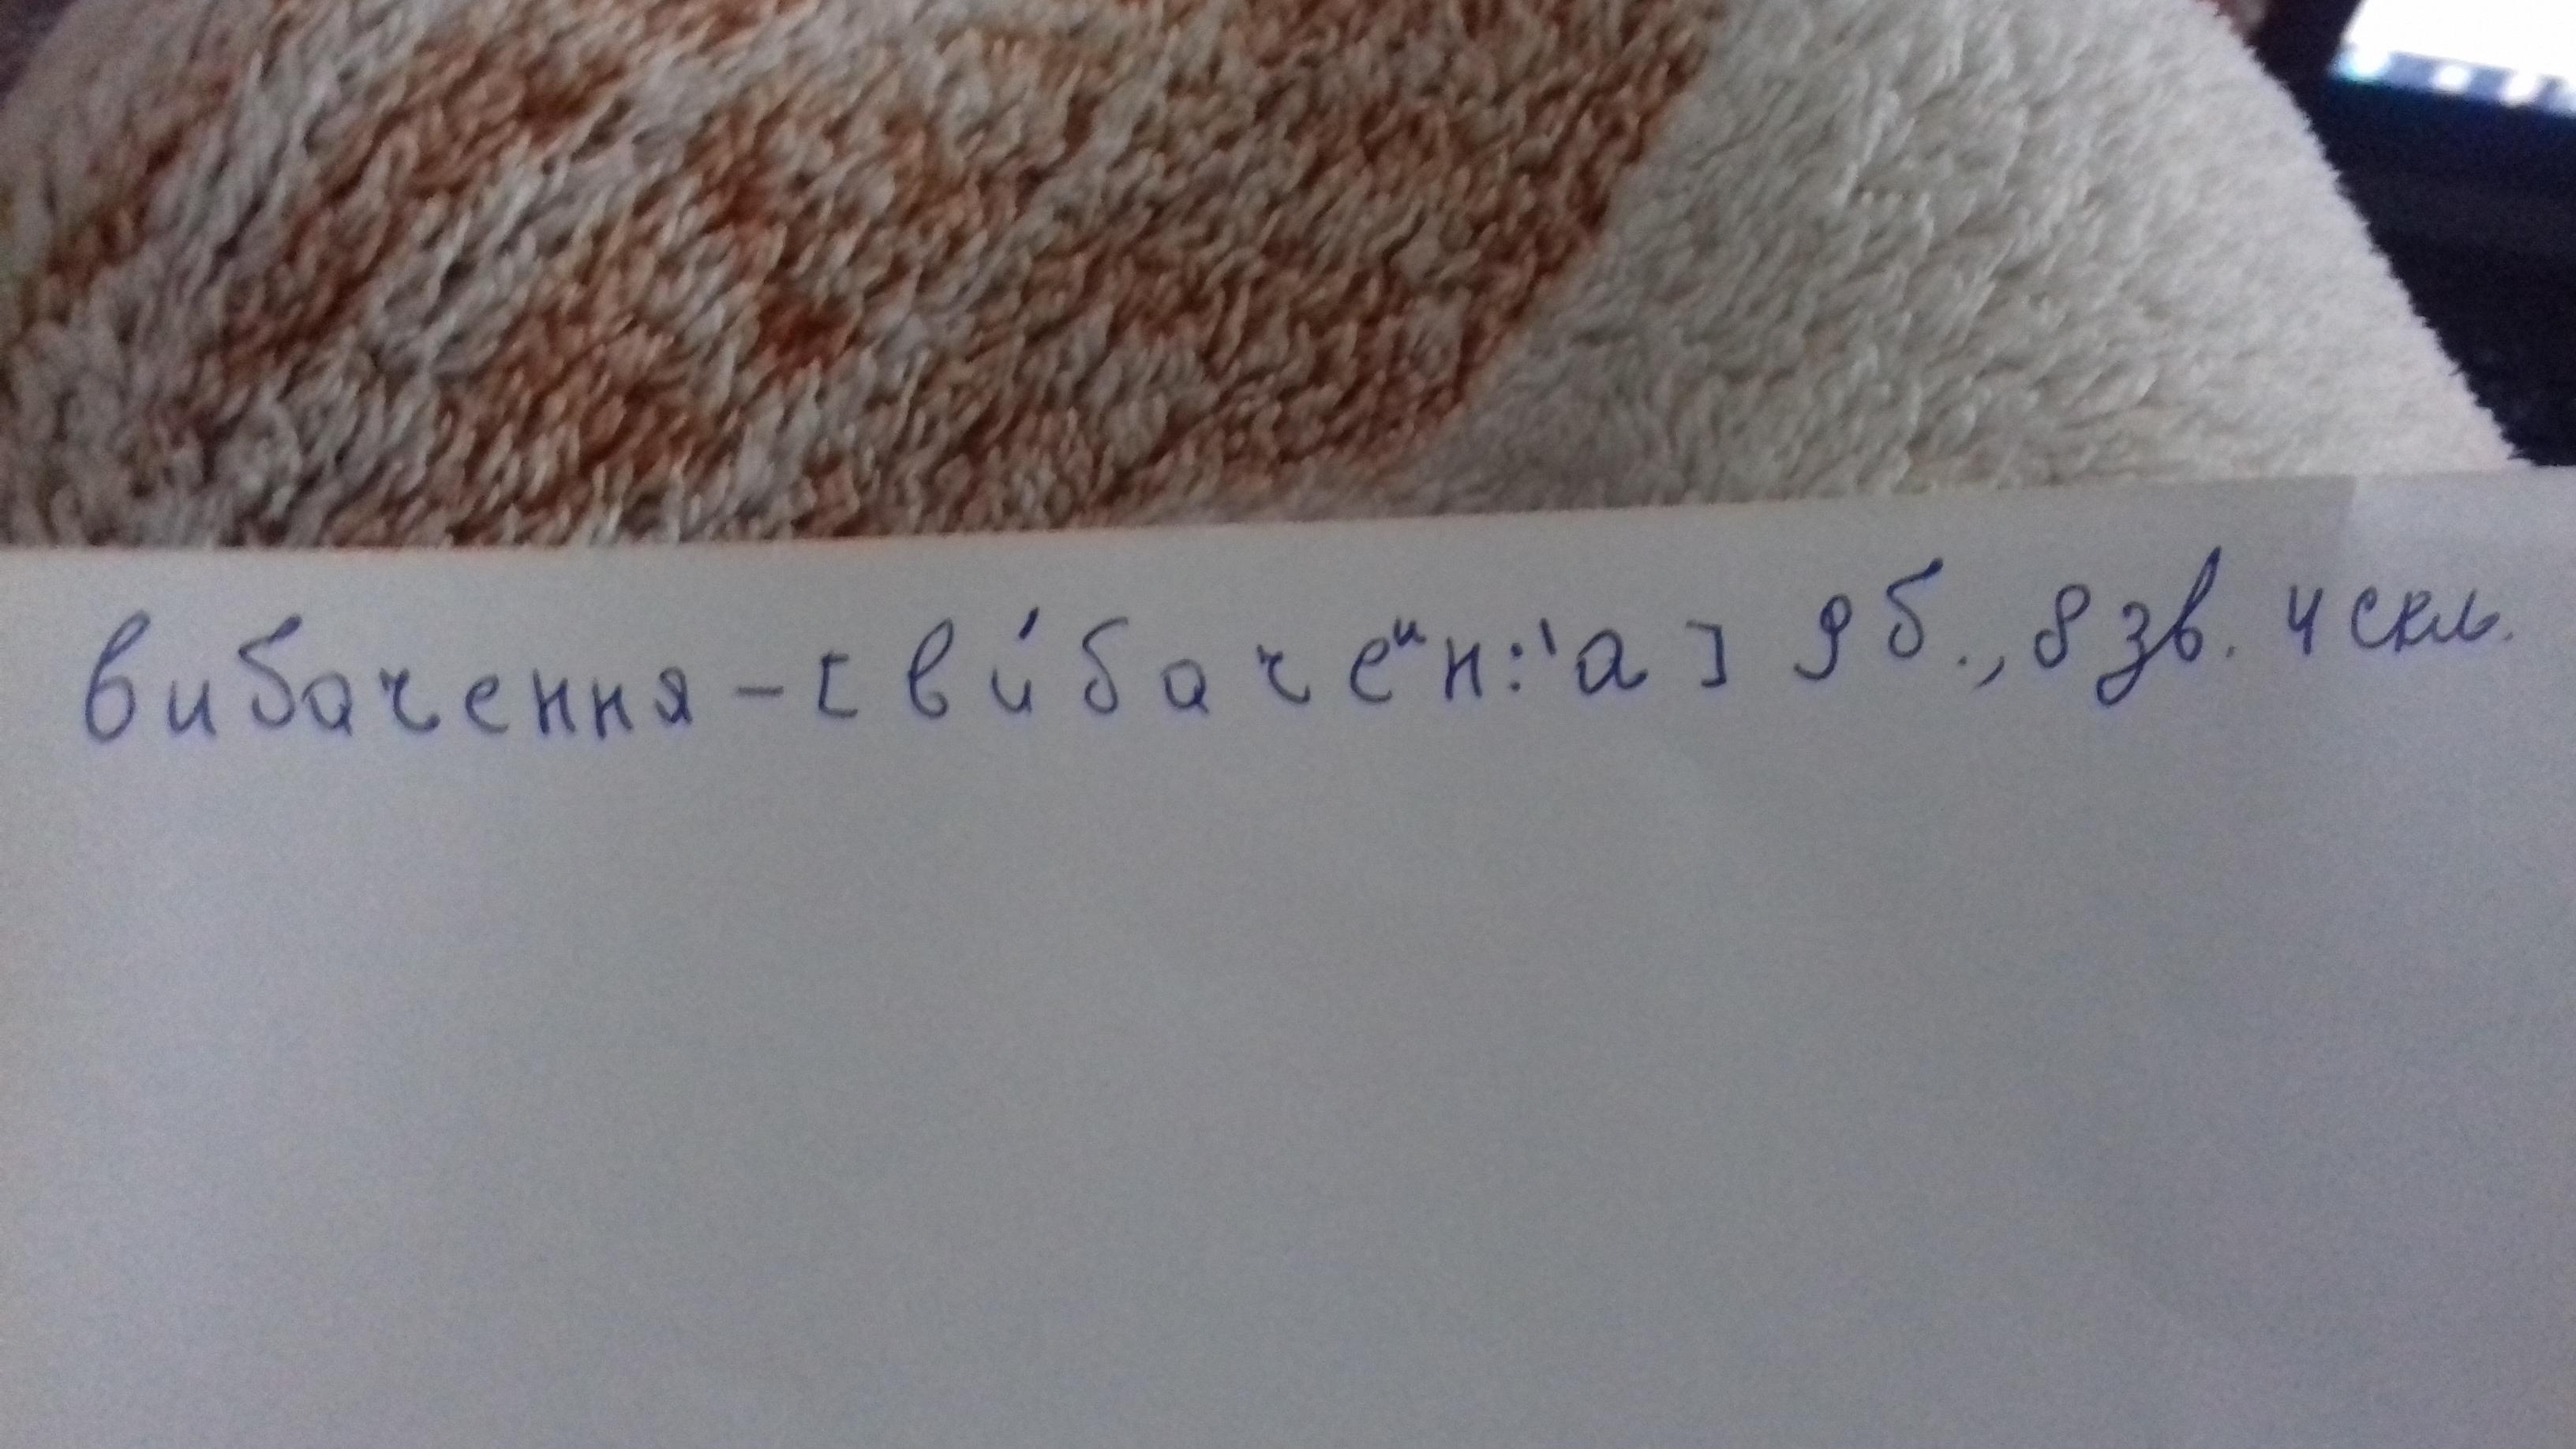 вибачення – [ви́бачеⁱн:'а] 9 б., 8 зв. 4 скл.